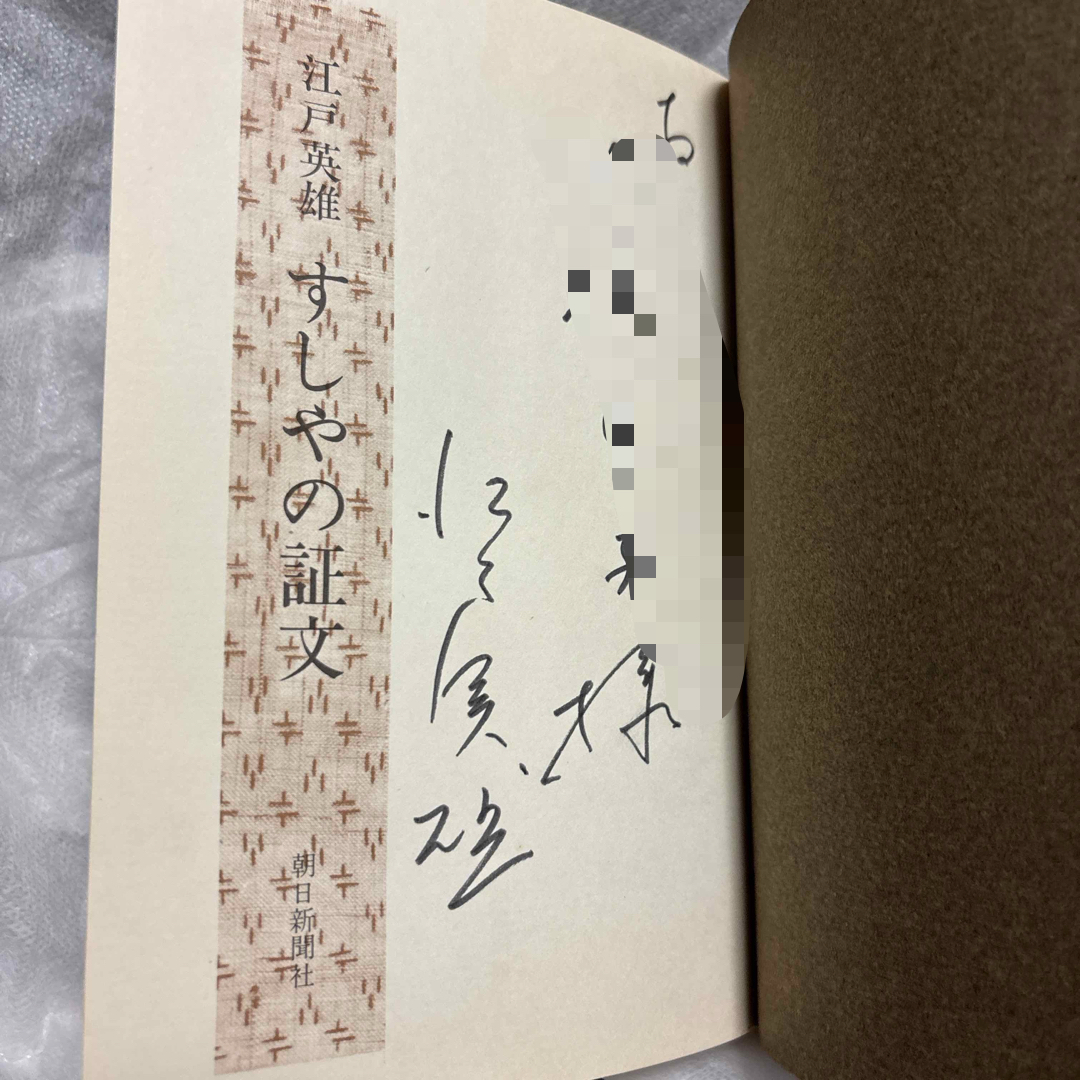 様
江戸英雄
江戸英雄 すしやの証文 朝日新聞社